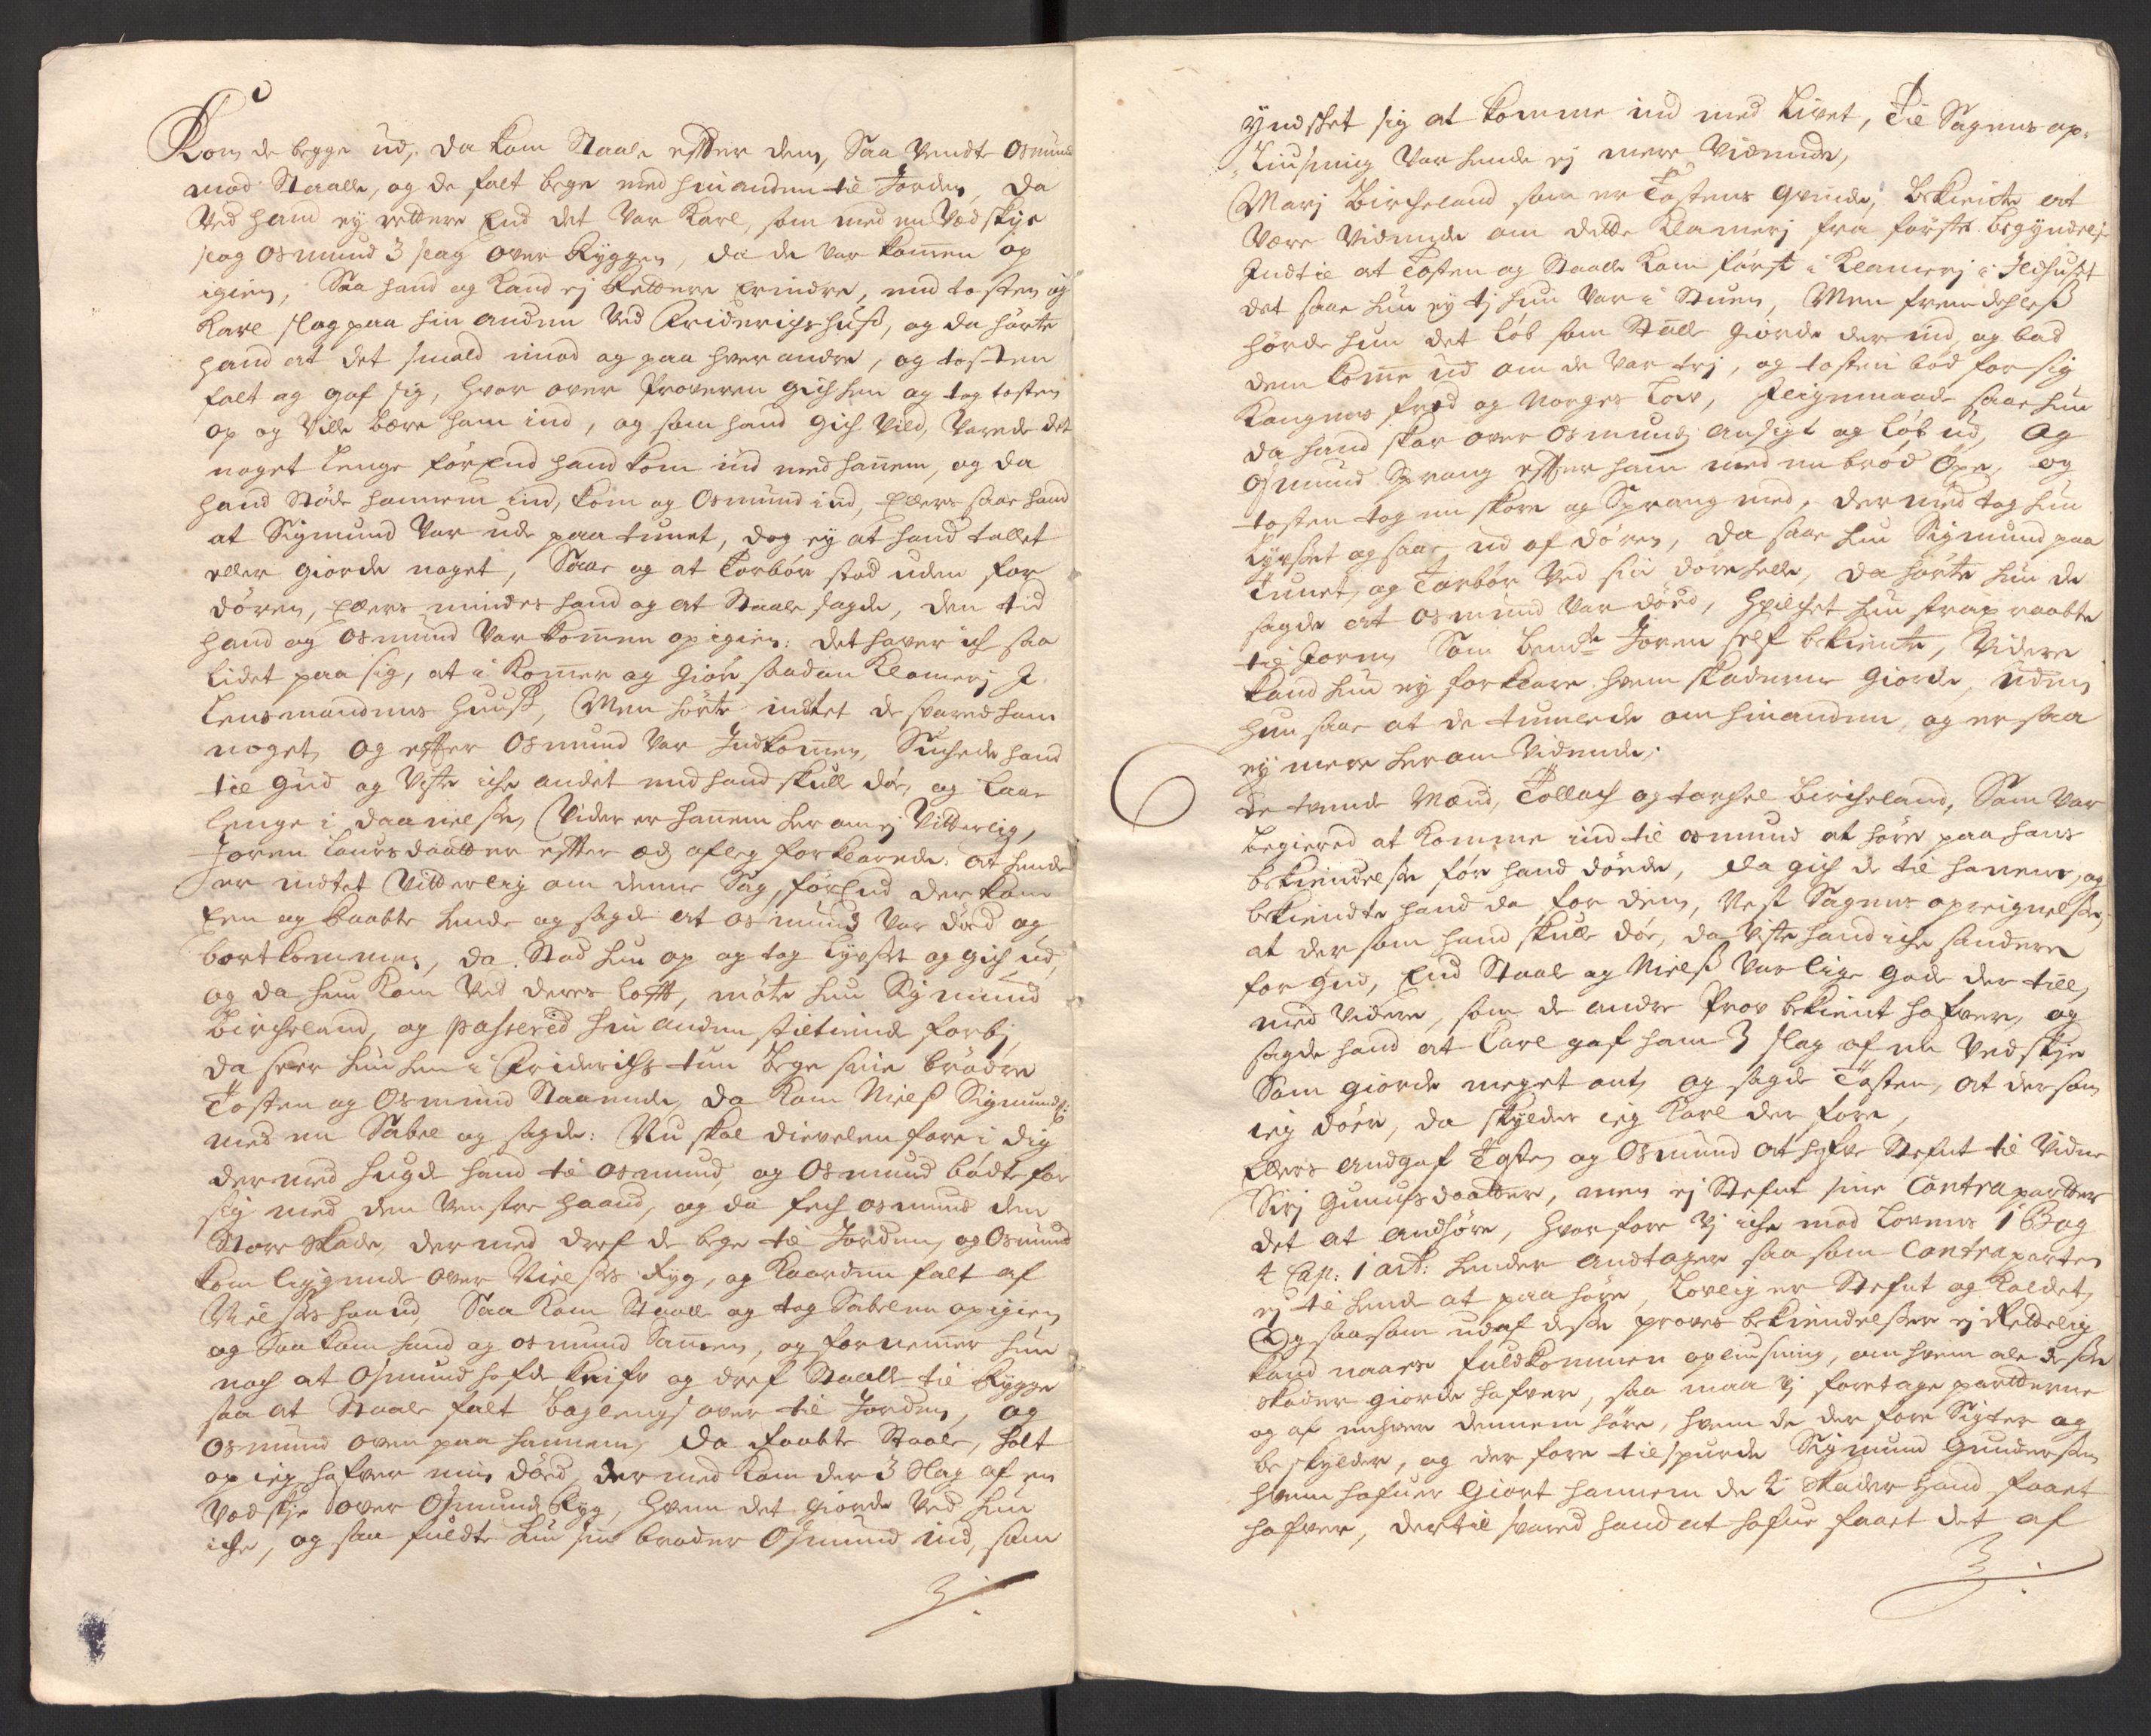 Kom de begge ud, da kom Staale effter dem, Saa vendte Osmund
mod Staalle, og de falt bege med hin anden til Jorden, da
Ved hand ey rettere End det var Karl, som med en Vedskye
slog Osmund 3 slag over Ryggen, da de var kommen op
igien, Saa hand og Kand ej Rettere Erindre, end tosten og
Karl slog paa hin anden ved Friderichs huuß, og da hørte
hand at det smald imod og paa hver andre, og tosten
falt og gaf sig, hvor over Proveren gich hen og tog tosten
op og Ville bære ham ind, og som hand gich Vild, Varede det
noget lenge før End hand kom ind med hannem, og da
hand Støde hannem ind, kom og Osmund ind, Ellers saae hand
at Sigmund Var ude paa tunet, dog ey at hand tallet
eller giorde noget, Saae og at Torbør stod uden for
døren, Ellers mindes hand og at Staale sagde, den tid
hand og Osmund Var kommen op igien: det haver ich saa
lidet paa sig, at i Komer og Giør saadan Klamerj I
Lensmandens Huuß, Men hørte indtet de svared ham
noget, og effter Osmund Var Indkommen, Suchede hand
til gud og Viste iche andet end hand skulle døe, og laae
lenge i daanelsen, Vider er hannem her om ej Vitterlig,
Joren Laursdaatter effter æd afleg forklarede: at hende
er indtet Vitterlig om denne Sag, før End der kom
Een og Raabte hende og sagde at Osmund Var død og
bortkommen, da Stod hun op og tog Lyset og gich ud,
og da hun kom Ved deres lofft, møtte hun Sigmund
Bircheland, og passered hin anden stiltiende forbj,
da seer hun hen i Friderichs tun bege sine brødre
Tosten og Osmund Staaende, da Kom Nielß Sigmundß:
med en Sabel og sagde: Nu skal dievelen fare i dig
dermed hugde hand til Osmund og Osmund bødte for
sig med den Venstre haand, og da fech Osmund den
Store Skade, der med dref de bege til Jorden, og Osmund
kom liggende over Nielses Ryg, og Kaarden falt af
Nielses haand, Saa Kom Staale og tog Sabelen op igien
og Saa kom hand og Osmund Sammen, og fornemmer hun
noch at Osmund hafde knifv og dref Staalle til Rygge
saa at Staale falt baglengs over til Jorden, og
Osmund oven paa hannem, da Raabte Staale, holt
op ieg hafver min død, der med kom der 3 Slag af en
Vedskye over Osmunds Ryg, hvem det giorde Ved hun
iche, og saa fuldte hun sin broder Osmund ind, som
yndsket sig at komme ind med Livet, Til Sagens op-
liusning Var hende ej mere Vidende,
Marj Bircheland som er Tostens Qvinde, bekiente at
være Vidende om dette Klamerj fra første begyndelse
Indtil at Tosten og Staalle kom først i Klamerj i Ildhuset
det saae hun ey tj hun var i Stuen, Men fremdeleß
hørde hun det løb som Stalle giorde der ind, og bad
dem komme ud om de var trj, og tosten bød for sig
Kongens fred og Norges Lov, Ligemaade saae hun
da hand skar over Osmunds ansigt og løb ud, og
Osmund Sprang effter ham med en brød Øxe, og
tosten tog en skøre og Sprang med, der med tog hun
Lyset og saae ud af døren, da saae hun Sigmund paa
Tunet, og Torbør Ved sin dørehelle, da hørte hun de
sagde at Osmund Var død, hvilchet hun strax raabte
til Joren Som bemte Joren self bekiente, Videre
kand hun ey forklare hvem skaderne giorde, uden
hun saae at de tumlede om hinanden, og er saa
ey mere her om Vidende,
De tvende Mænd, Tollach og torchel Bircheland, Som Var
begiered at komme ind til Osmund at høre paa hans
bekiendelse før hand døede, da gich de til hannem, og
bekiendte hand da for dem, Nest Sagens opreignelse,
at der som hand skulle døe, da Viste hand iche sandere
for Gud, End Staale og Nielß Var lige gode der till,
med videre, som de andre Prov bekient hafver, og
sagde hand at Carl gaf ham 3 slag af en Vedskye
Som giorde meget ont, og sagde Tosten, at der som
ieg døer, da skylder ieg Karl der fore,
Ellers Andgaf Tosten og Osmund at hafve Stefnt til Vidne
Sirj Gunersdaatter, men ej Stefnt sine Contraparter
det at andhøre, hvorfore Vj iche mod Lovens 1 Bog
4 Cap: 1 art: hender Andtager saa som Contraparten
ej til hende at paahøre, Lovlig er Stefnt og Kaldet,
Og saasom udaf disse proves bekiendelser ej Rettelig
kand naaes fuldkommen opliusning, om hvem alle disse
skader giorde hafver, saa maa Vj foretage parterne
og af enhver dennem høre, hvem de der fore Sigter og
beskylder, og der fore tilspurde Sigmund Gundersen
hvem hafuer Giort hannem de 2 Skader hand faaet
hafver, dertil svared hand at hafue faaet det af